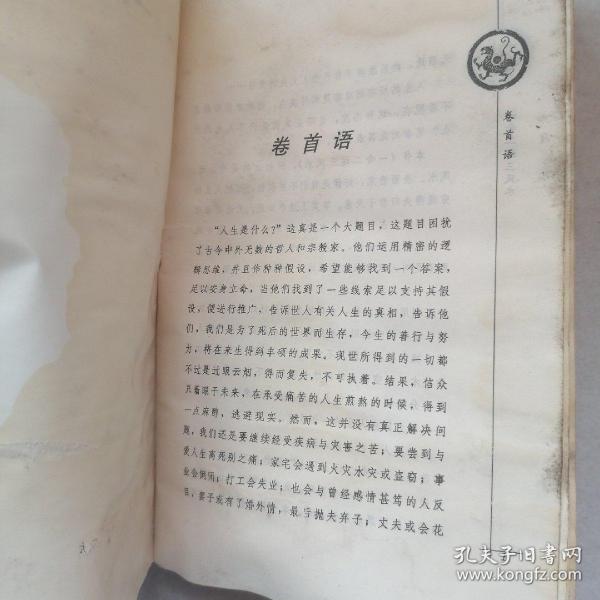 卷首语
卷首语
“人生是什么?”这真是一个大题目，这题目困扰
了古今中外无数的哲人和宗教家。他们运用精密的逻
辑思维，并且作种种假设，希望能够找到一个答案，
足以安身立命，当他们找到了一些线索足以支持其假
设，便进行推广，告诉世人有关人生的真相，告诉他
们，我们是为了死后的世界而生存，今生的善行与努
力，将在来生得到丰硕的成果。现世所得到的一切都
不过是过眼云烟，得而复失，不可执着。结果，信众
只着眼于未来，在承受痛苦的人生煎熬的时候，得到
一点麻醉，逃避现实。然而，这并没有真正解决问
题，我们还是要继续经受疾病与灾害之苦；要尝到与
爱人生离死别之痛；家宅会遇到火灾水灾或盗窃；事
业会倒闭；打工会失业；也会与曾经感情甚笃的人反
目，妻子或有了婚外情，最后抛夫弃子；丈夫或会花
孔夫子旧书网
www.kongfz.com